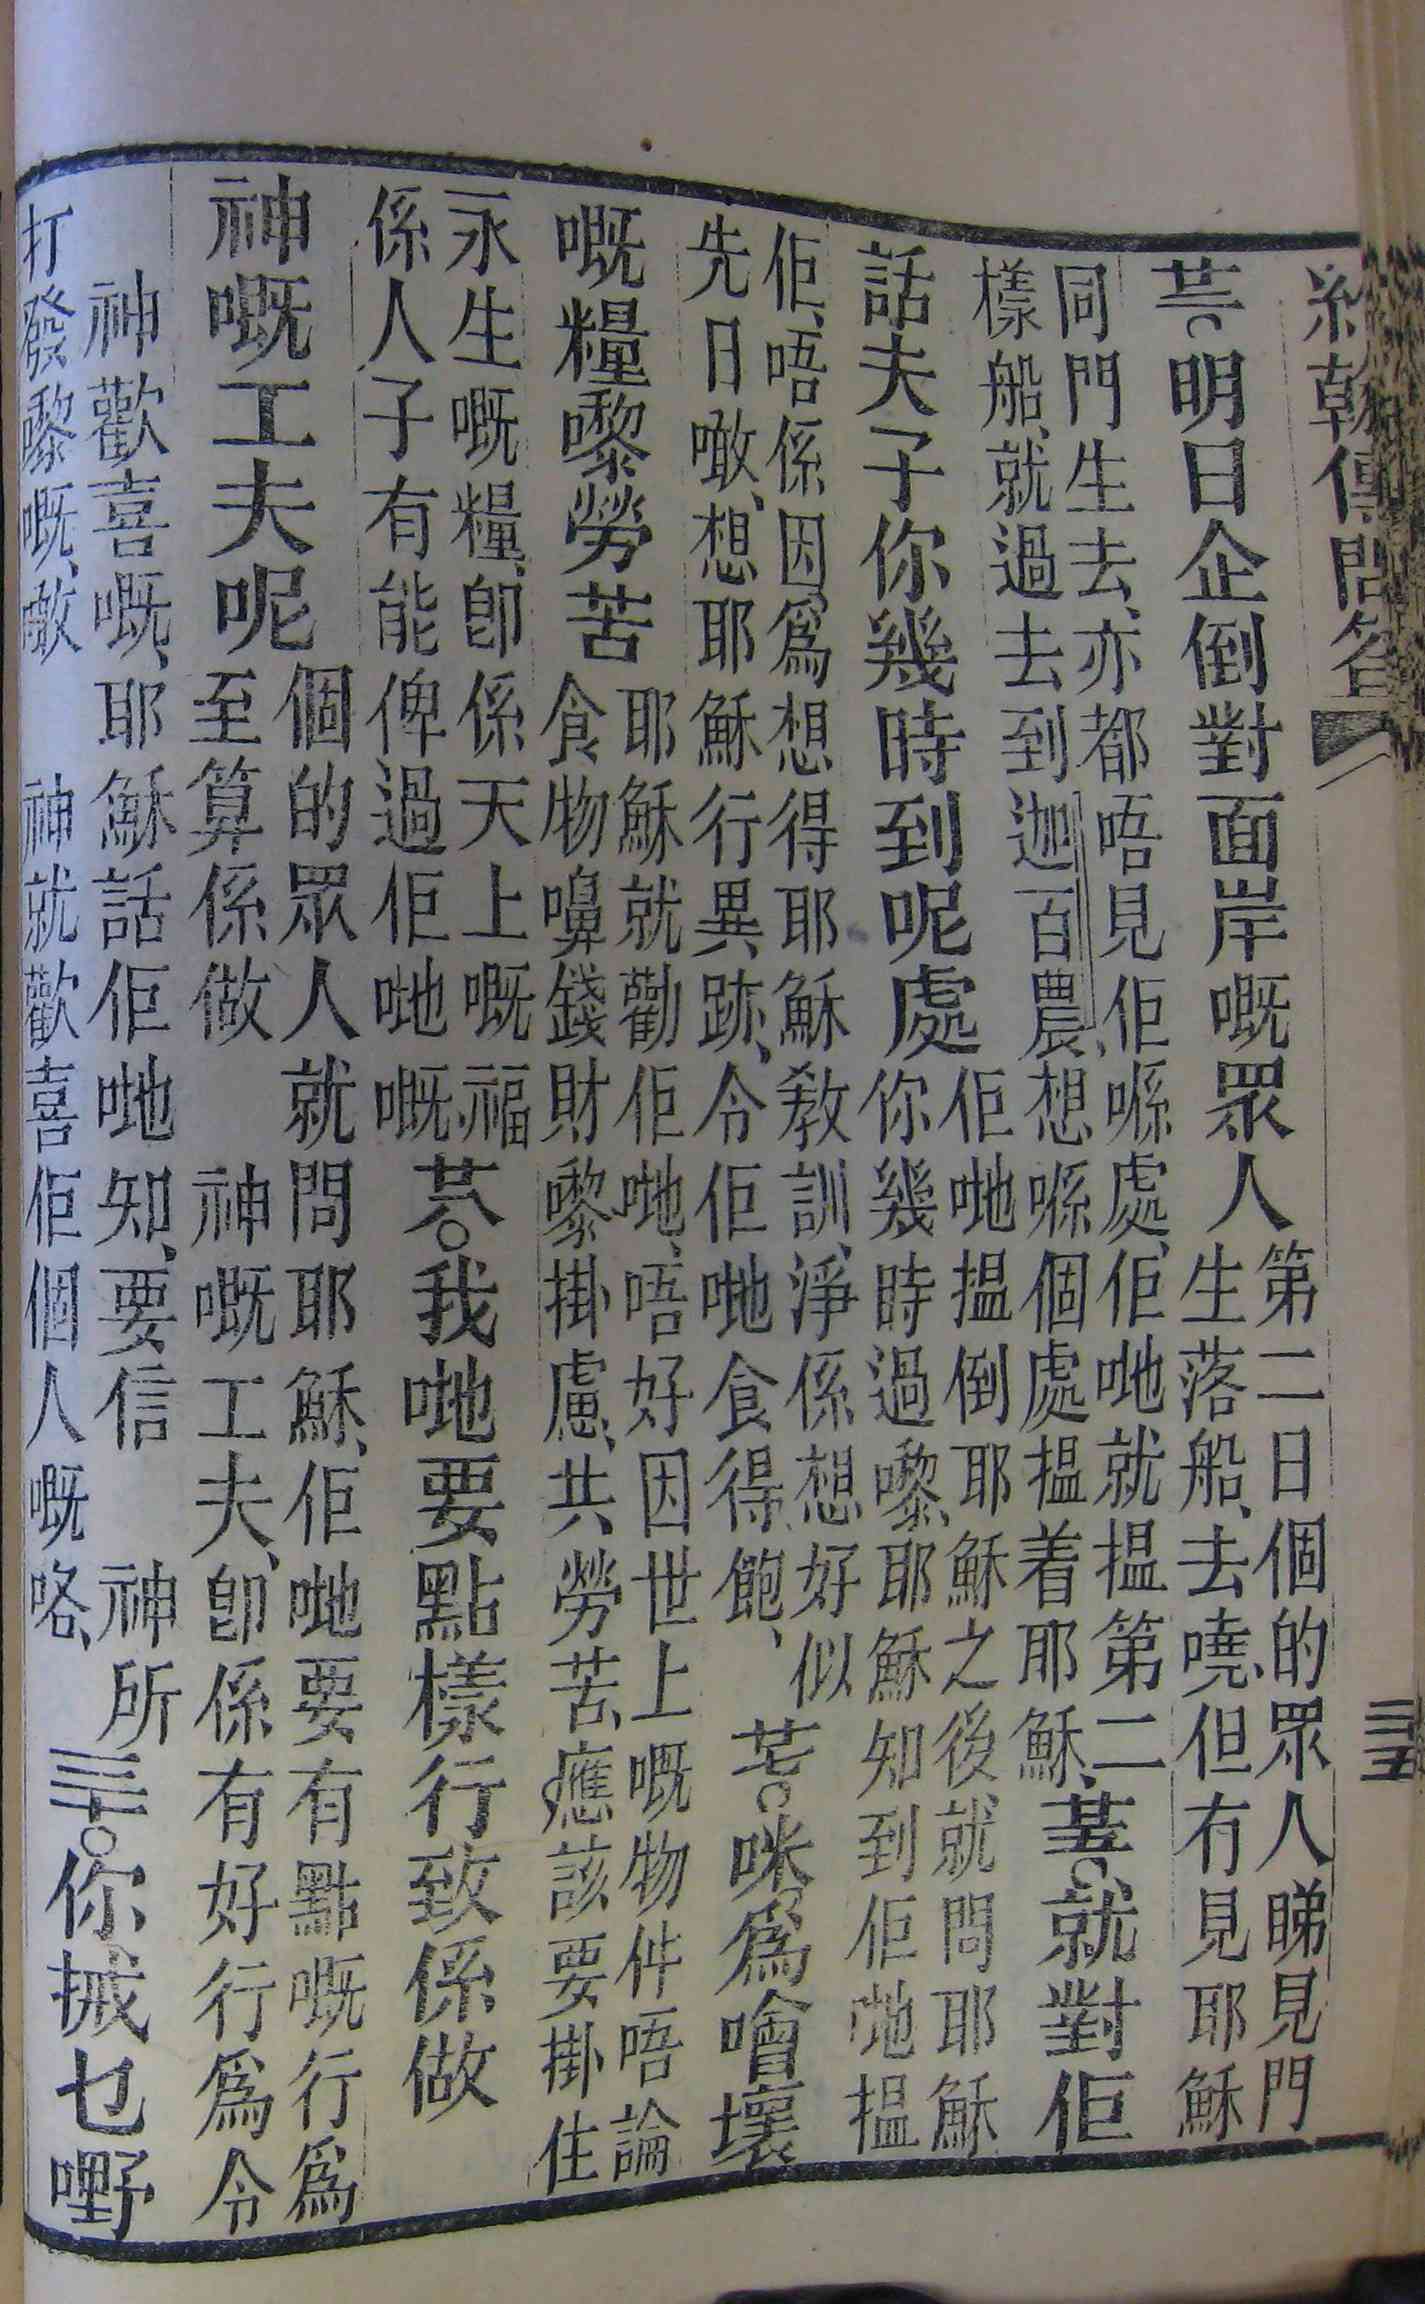 約翰傳問答
廿二。明日企倒對面岸嘅眾人
第二日個的眾人睇見門
生落船、去嘵、但冇見耶穌
同門生去、亦都唔見佢喺處、佢哋就搵第二
樣船、就過去到迦百農、想喺個處搵着耶穌、
廿五。就對佢
話夫子你幾時到呢處
佢哋搵倒耶穌之後就問耶穌
你幾時過嚟、耶穌知到佢哋搵
佢、唔係因爲想得耶穌教訓、淨係想好似
先日噉、想耶穌行異跡、令佢哋食得飽、
廿七。咪爲噲壞
嘅糧嚟勞苦
耶穌就勸佢哋、唔好因世上嘅物件唔論
食物嚊錢財嚟掛慮、共勞苦、應該要掛住
永生嘅糧、卽係天上嘅福
係人子有能俾過佢哋嘅
廿八。我哋要點樣行致係做
神嘅工夫呢
個的眾人就問耶穌、佢哋要有點嘅行爲
至算係做 神嘅工夫、卽係有好行爲令
神歡喜嘅、耶穌話佢哋知、要信 神所
打發嚟嘅、噉 神就歡喜佢個人嘅咯、
三十。你搣乜嘢